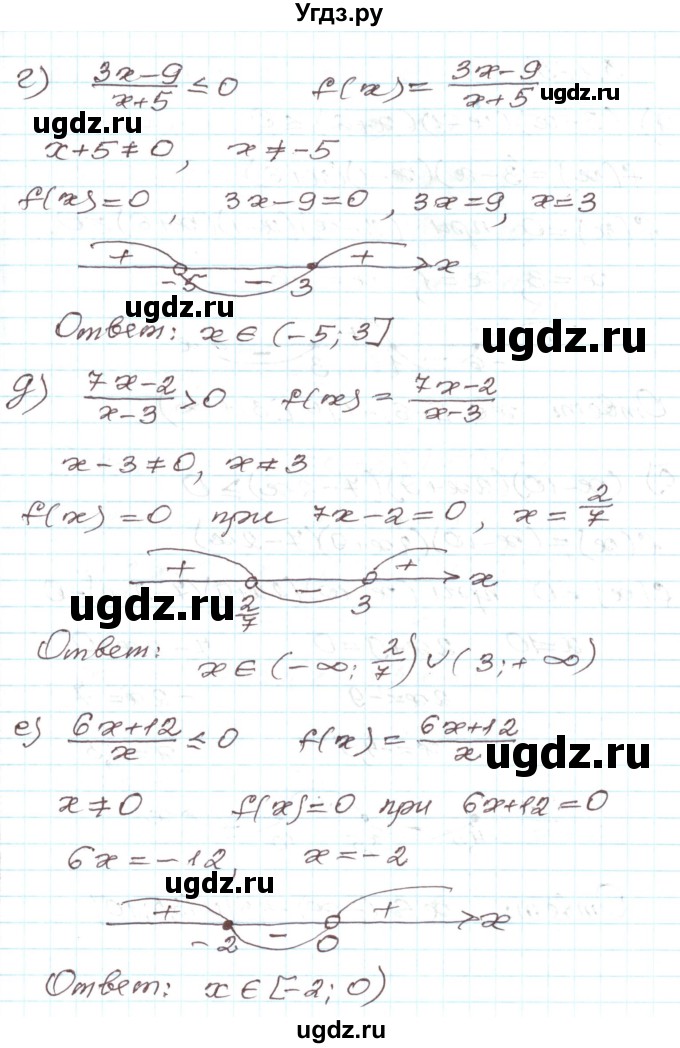 Угдз.ру
г) (3x-9)/(x+5) ≤ 0 f(x) = (3x-9)/(x+5)
ugdz.ru
ugdz.ru
x+5≠0, x≠-5
f(x)=0, 3x-9=0, 3x=9, x=3
+ - + x
-5 3
ugdz.ru
Ответ: x∈(-5; 3]
ugdz.ru
д) (7x-2)/(x-3) > 0 f(x) = (7x-2)/(x-3)
x-3≠0, x≠3
f(x)=0 при 7x-2=0, x=2/7
+ - + x
2/7 3
ugdz.ru
Ответ: x∈(-∞; 2/7)∪(3; +∞)
е) (6x+12)/x ≤ 0 f(x) = (6x+12)/x
ugdz.ru
x≠0 f(x)=0 при 6x+12=0
6x=-12, x=-2
ugdz.ru
+ - + x
-2 0
Ответ: x∈[-2; 0)
ugdz.ru